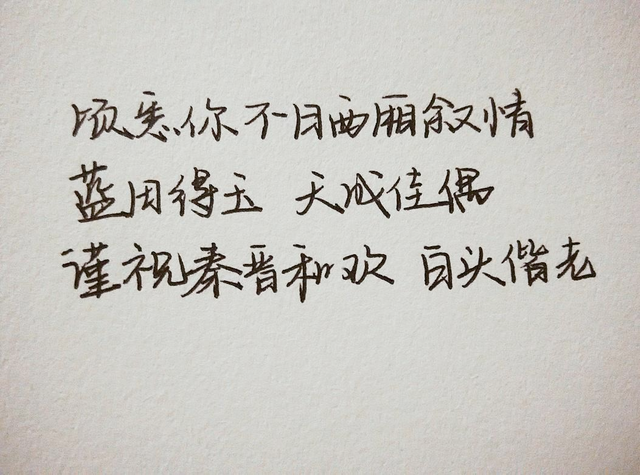 顷悉你不日西厢叙情
蓝田得玉 天成佳偶
谨祝秦晋和欢 白头偕老